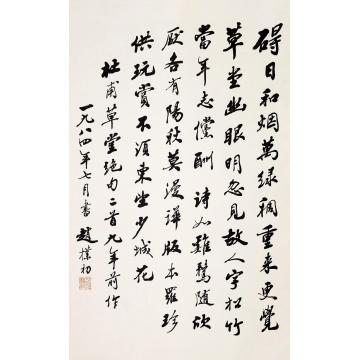 碍日和烟万绿稠重来更觉
草堂幽眼明忽见故人字松竹
当年志傥酬 诗如鸡鹜随欣
厌各有阳秋莫漫哗版本罗珍
供玩赏不须东坐少城花
杜甫草堂绝句二首九年前作
一九八四年七月书 赵朴初